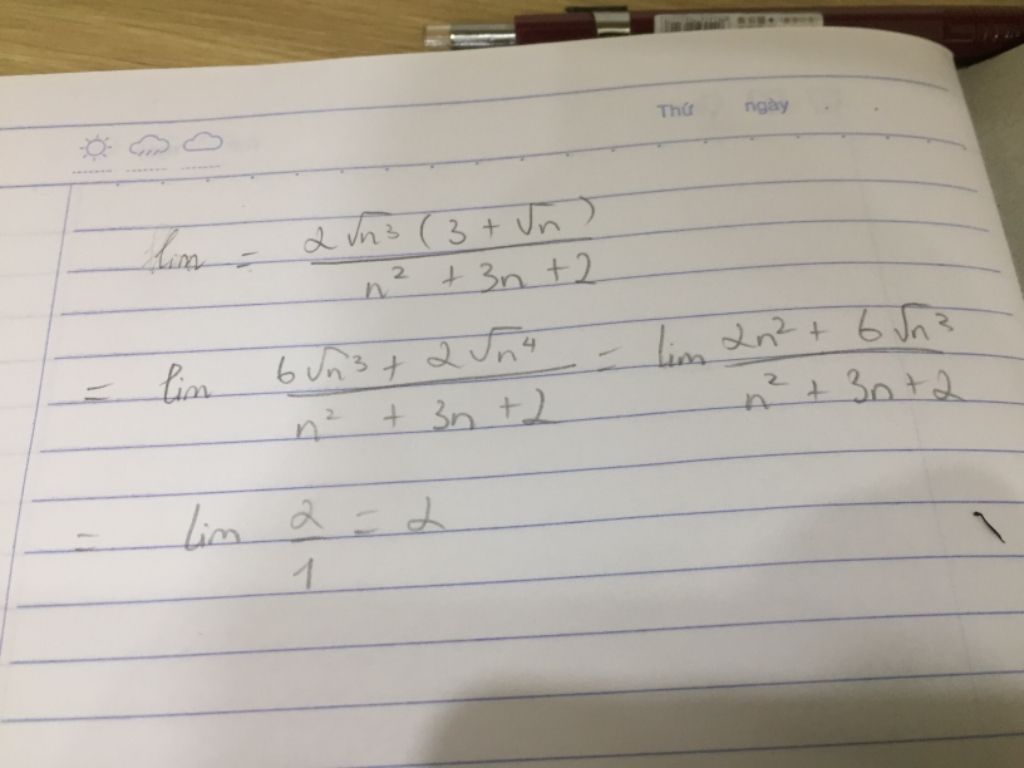 Thứ ngày
lim = 2√n³ (3 + √n) / n² + 3n + 2
= lim 6√n³ + 2√n⁴ / n² + 3n + 2 = lim 2n² + 6√n³ / n² + 3n + 2
= lim 2/1 = 2